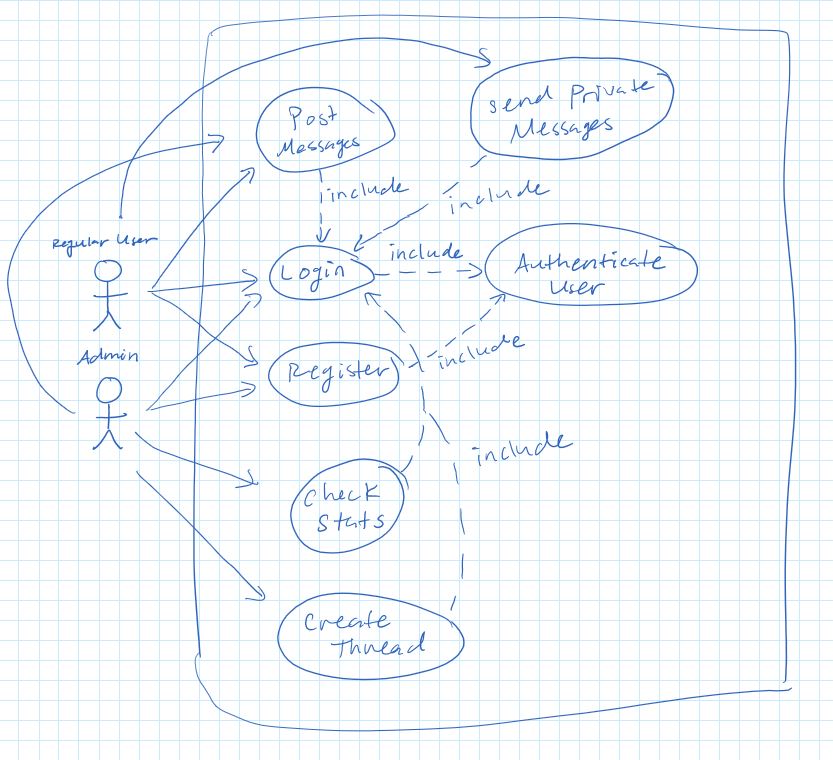 Post
Messages
Send Private
Messages
include
include
Regular User
Login
include
Authenticate
User
Admin
Register
include
include
Check
Stats
Create
Thread